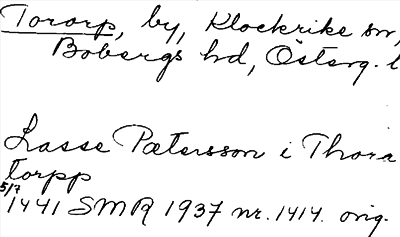 Torarp, by, Klockrike sn,
Bobergs hd, Österg. l
Lasse Pætersson i Thora
torpp
5/7
1441 SMR 1937 nr. 1414. orig.